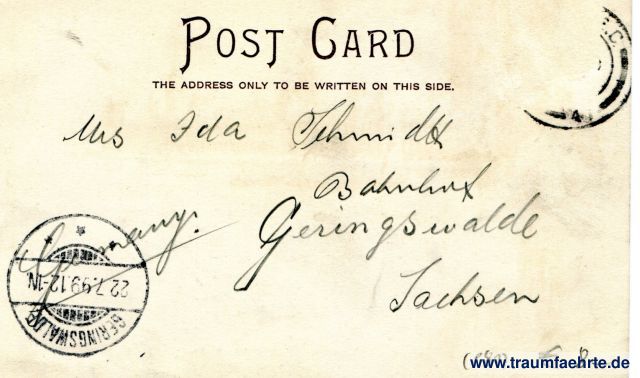 POST CARD
THE ADDRESS ONLY TO BE WRITTEN ON THIS SIDE.
Mrs Ida Schmidt
Bahnhof
Geringswalde
Germany.
Sachsen
GERINGSWALDE
22.7.99.12-1N
E.C.
4
www.traumfaehrte.de